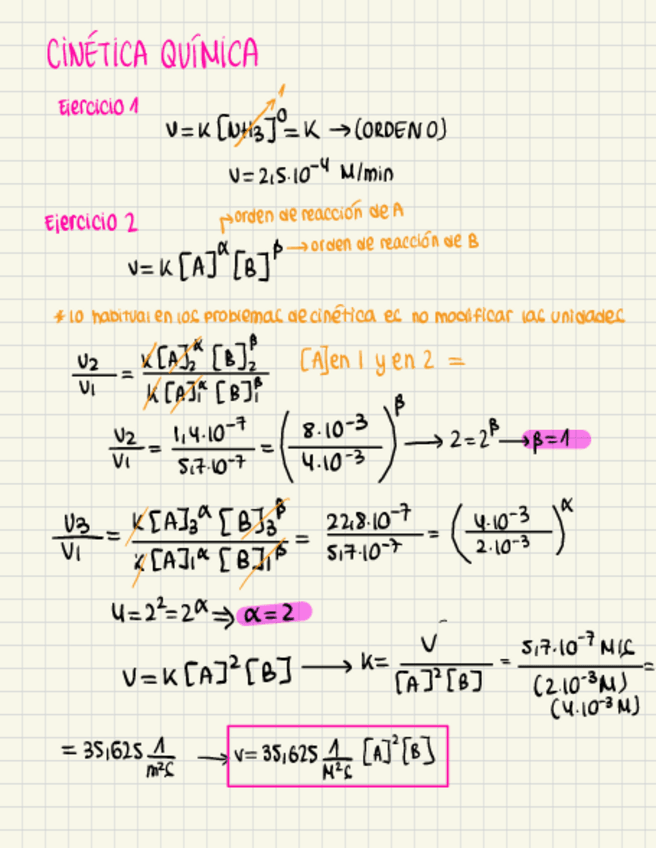 CINÉTICA QUÍMICA
Ejercicio 1
V = K [NH3]^0 = K → (ORDEN 0)
1
V = 2,5·10^-4 M/min
Ejercicio 2
orden de reacción de A
V = K [A]^α [B]^β → orden de reacción de B
* lo habitual en los problemas de cinética es no modificar las unidades
V2/V1 = K[A]2^α [B]2^β / K[A]1^α [B]1^β [A] en 1 y en 2 =
V2/V1 = 1,4·10^-7 / 5,7·10^-7 = (8·10^-3 / 4·10^-3)^β → 2 = 2^β → β = 1
V3/V1 = K[A]3^α [B]3^β / K[A]1^α [B]1^β = 22,8·10^-7 / 5,7·10^-7 = (4·10^-3 / 2·10^-3)^α
4 = 2^2 = 2^α ⇒ α = 2
V = K[A]^2 [B] → K = V / [A]^2 [B] = 5,7·10^-7 M/s / (2·10^-3 M) (4·10^-3 M) =
= 35,625 1/m^2s → V = 35,625 1/M^2s [A]^2 [B]